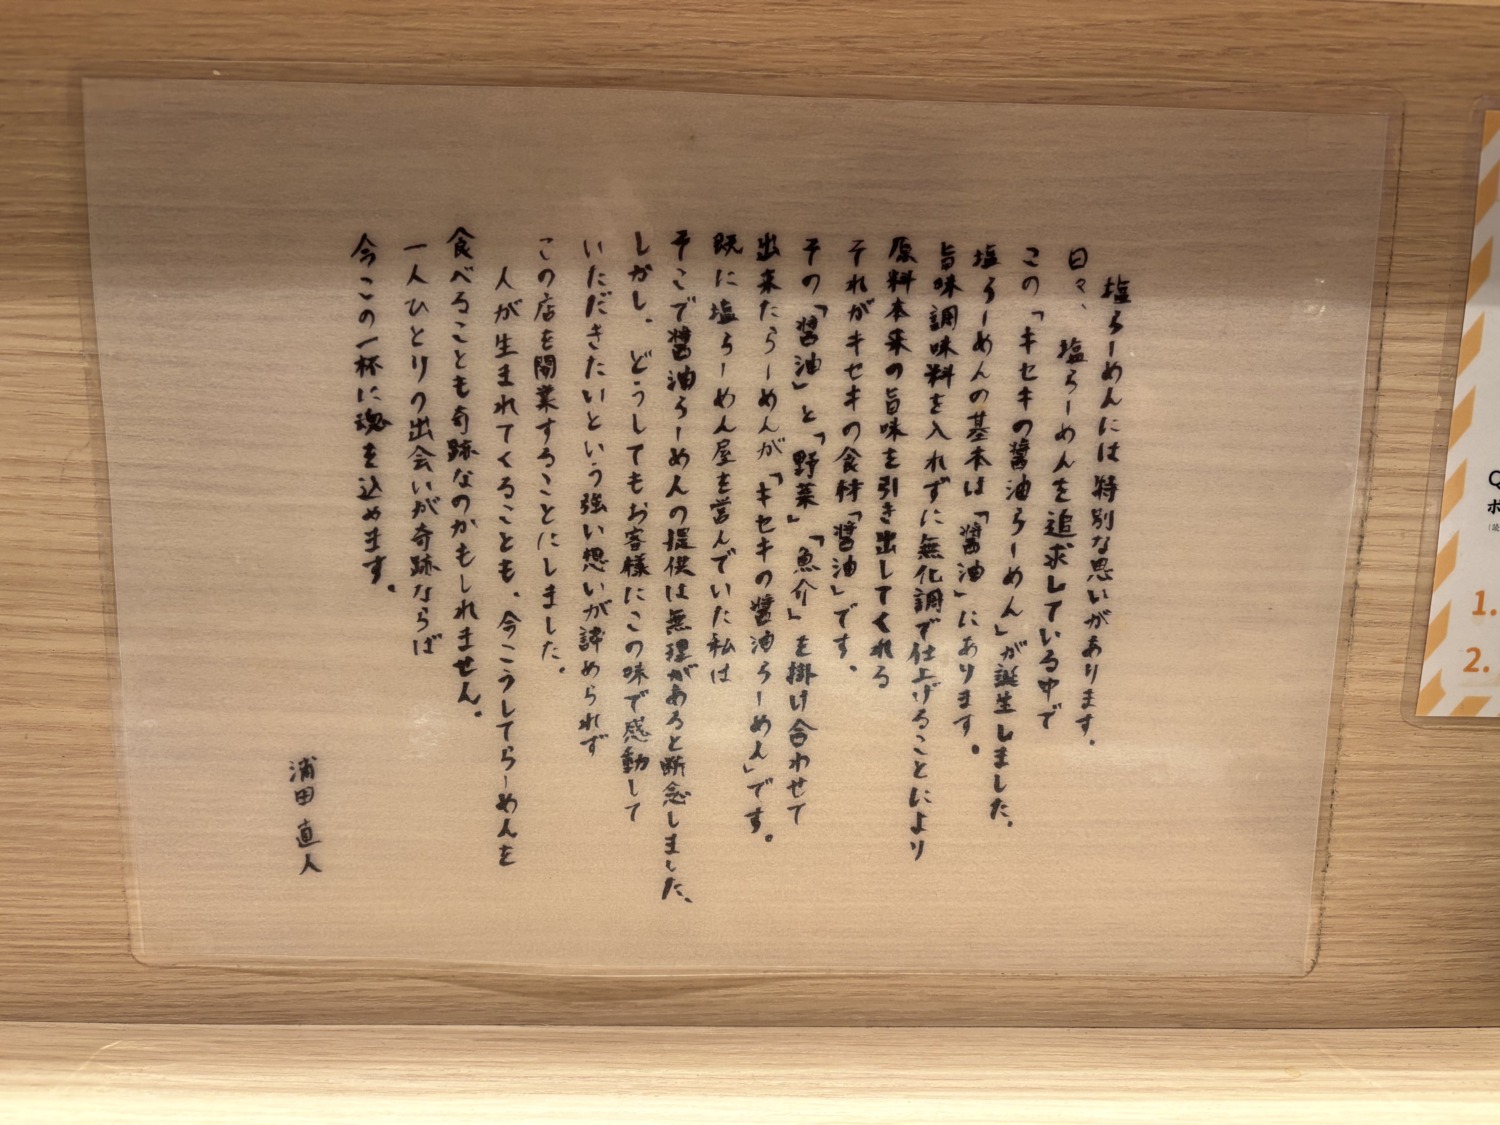 塩らーめんには特別な思いがあります。
日々、塩らーめんを追求している中で
この「キセキの醤油らーめん」が誕生しました。
塩らーめんの基本は「醤油」にあります。
旨味調味料を入れずに無化調で仕上げることにより
原料本来の旨味を引き出してくれる
それがキセキの食材「醤油」です。
その「醤油」と「野菜」「魚介」を掛け合わせて
出来たらーめんが「キセキの醤油らーめん」です。
既に塩らーめん屋を営んでいた私は
そこで醤油らーめんの提供は無理があると断念しました、
しかし、どうしてもお客様にこの味で感動して
いただきたいという強い想いが諦められず
この店を開業することにしました。
人が生まれてくることも、今こうしてらーめんを
食べることも奇跡なのかもしれません。
一人ひとりの出会いが奇跡ならば
今この一杯に魂を込めます。
浦田 直人
1.
2.